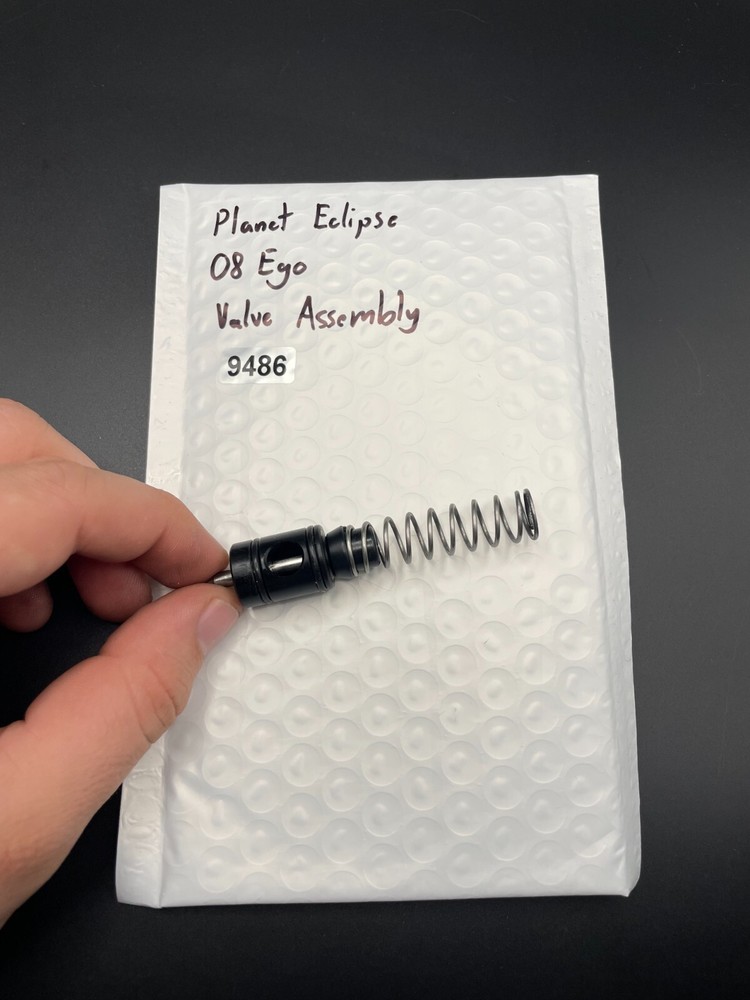 Planet Eclipse
08 Ego
Valve Assembly
9486